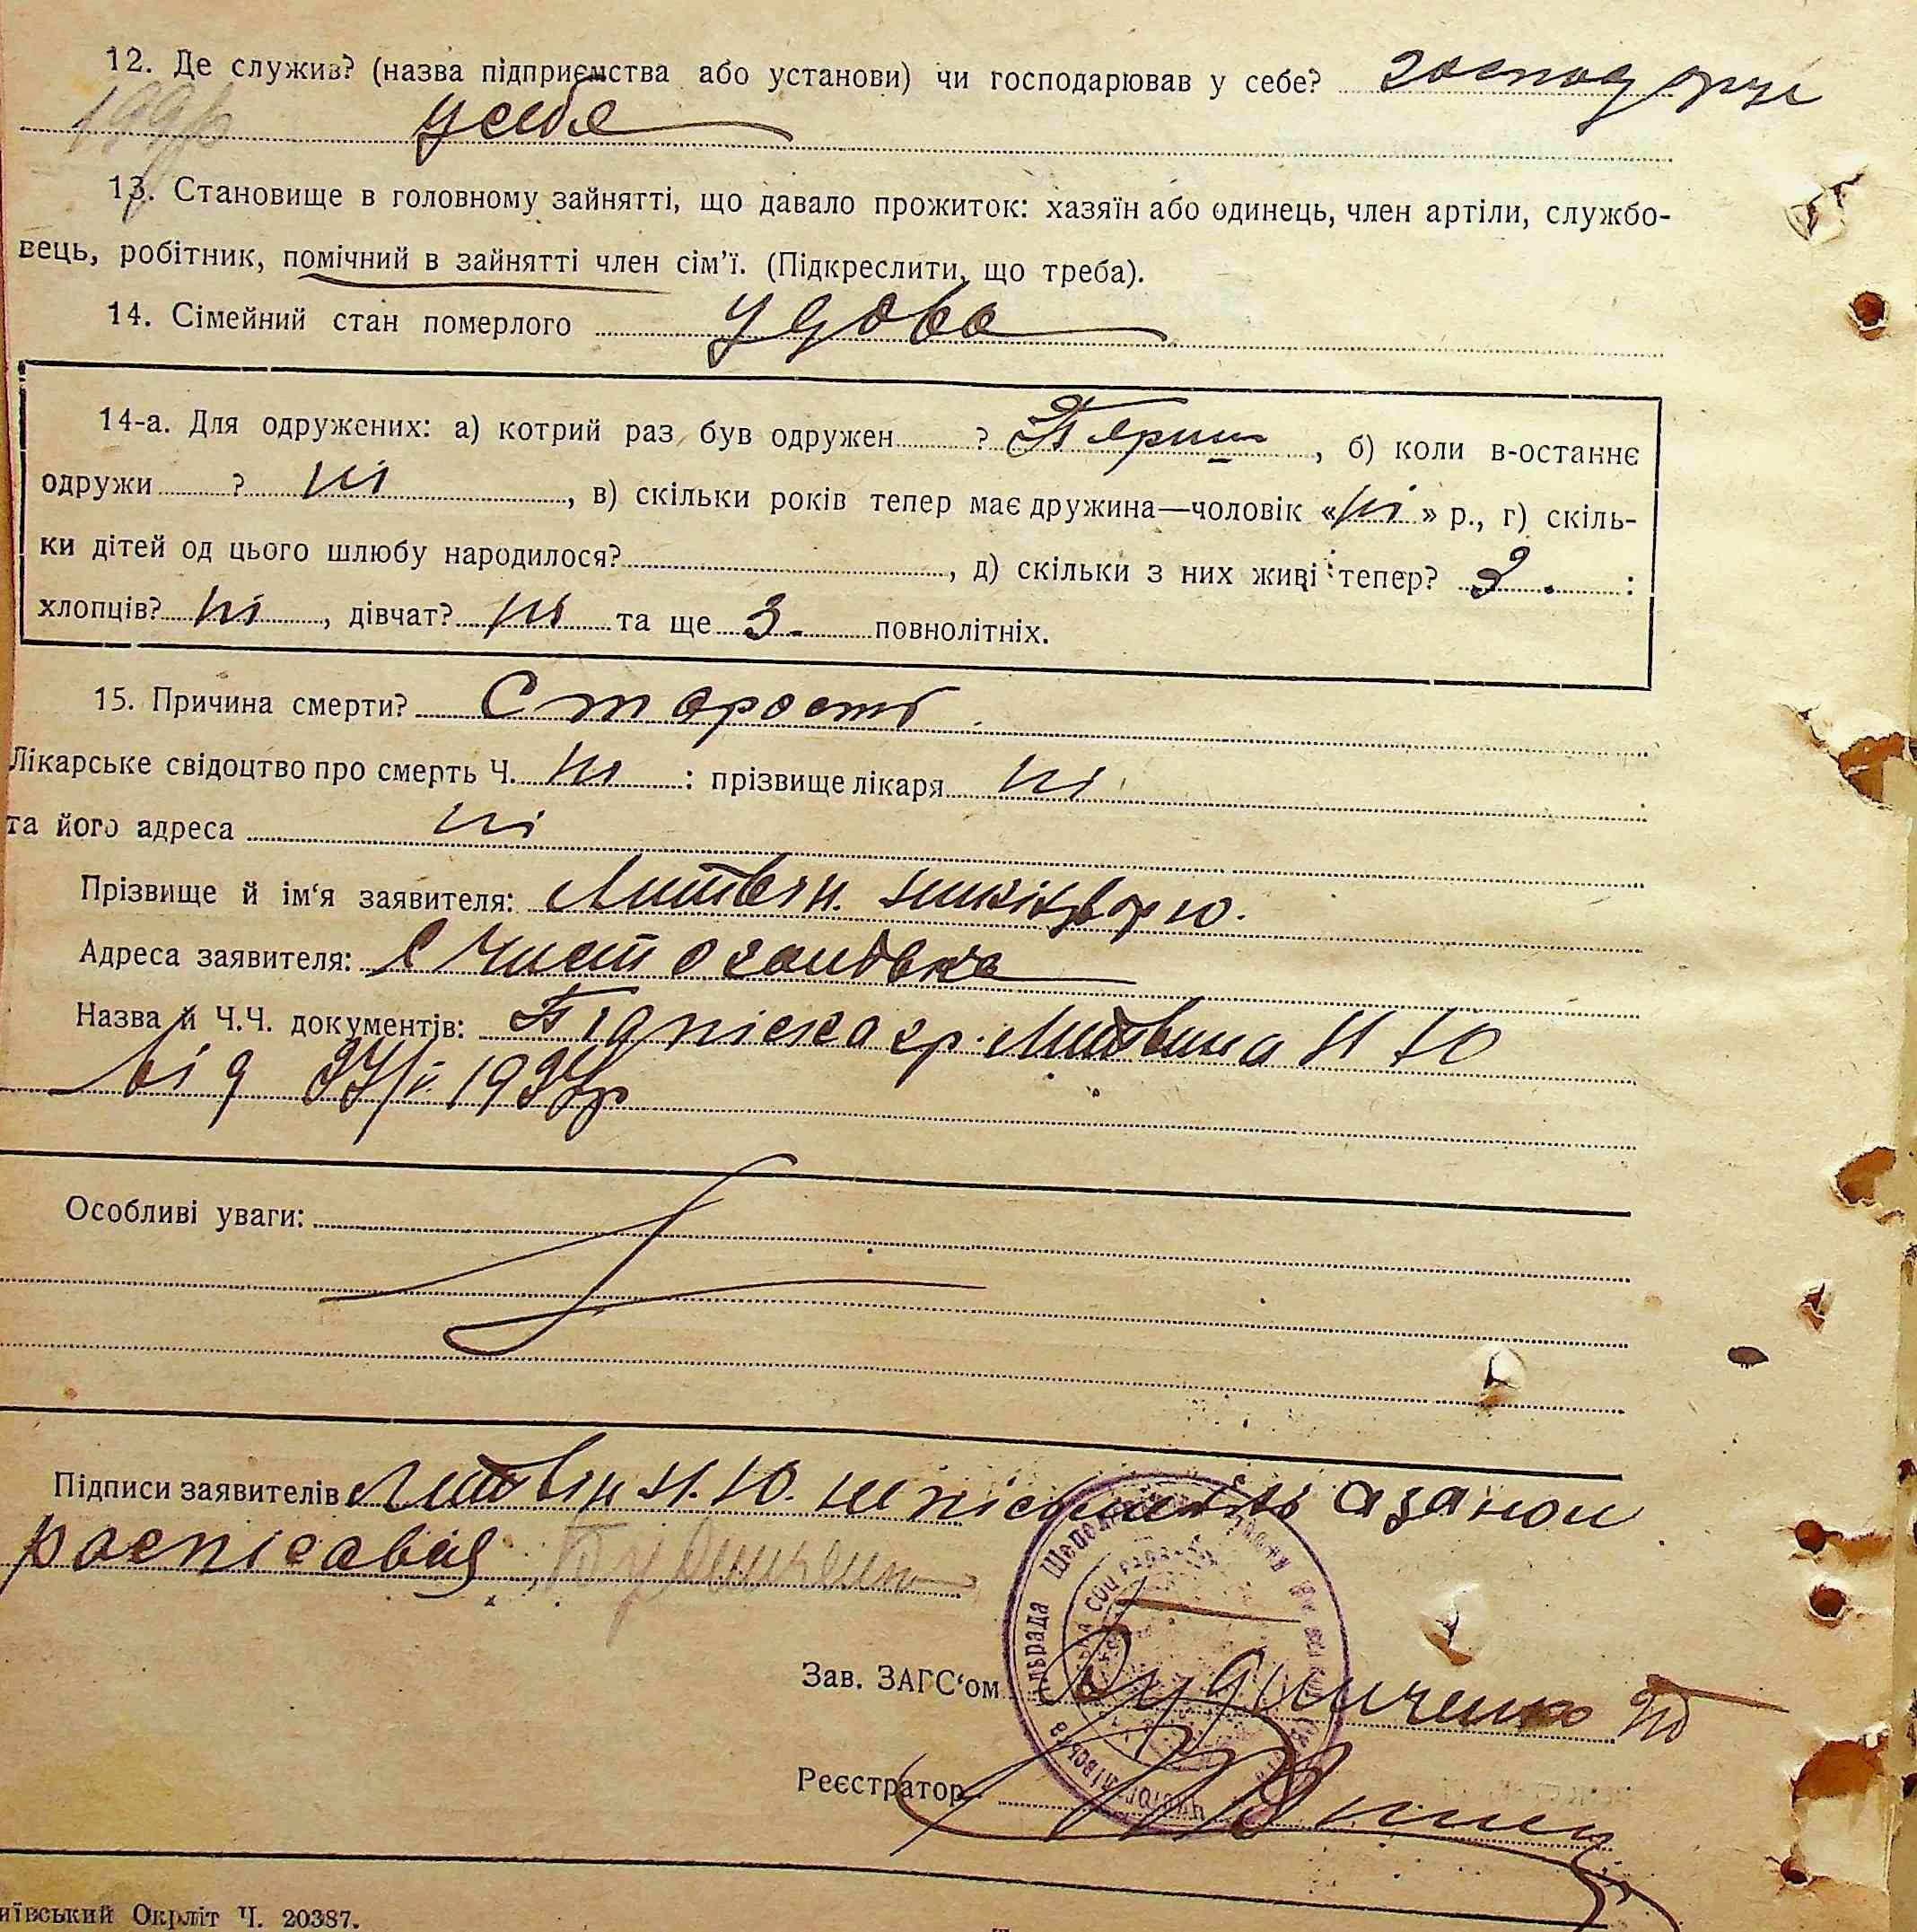 12. Де служив? (назва підприємства або установи) чи господарював у себе? господарює
у себе
13. Становище в головному зайнятті, що давало прожиток: хазяїн або одинець, член артіли, службо-
вець, робітник, помічний в зайнятті член сім'ї. (Підкреслити, що треба).
14. Сімейний стан померлого удова
14-а. Для одружених: а) котрий раз був одружен ? Перший, б) коли в-останнє
одружи ? ні, в) скільки років тепер має дружина—чоловік «ні» р., г) скіль-
ки дітей од цього шлюбу народилося?, д) скільки з них живі тепер? 3. :
хлопців? ні, дівчат? ні та ще 3. повнолітніх.
15. Причина смерти? Старость
Лікарське свідоцтво про смерть Ч. ні : прізвище лікаря ні
та його адреса ні
Прізвище й ім'я заявителя: Литвин
Адреса заявителя: С Чистогалівка
Назва й Ч.Ч. документів: Підпіска гр. Литвина Н Ю
від
Особливі уваги:
Підписи заявителів Литвин Н. Ю. а за ном
роспісавсь
Шепел
Зав. ЗАГС'ом Кудиченко
Реєстратор
иївський Окрліт Ч. 20387.